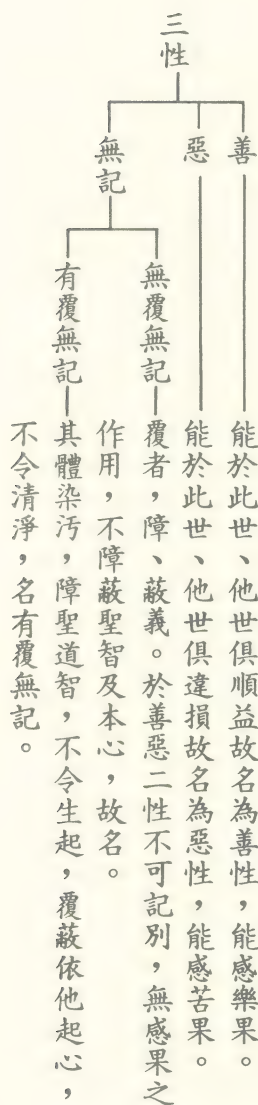 三性
善
能於此世、他世俱順益故名為善性，能感樂果。
惡
能於此世、他世俱違損故名為惡性，能感苦果。
無記
無覆無記
覆者，障、蔽義。於善惡二性不可記別，無感果之
作用，不障蔽聖智及本心，故名。
有覆無記
其體染汚，障聖道智，不令生起，覆蔽依他起心，
不令清淨，名有覆無記。